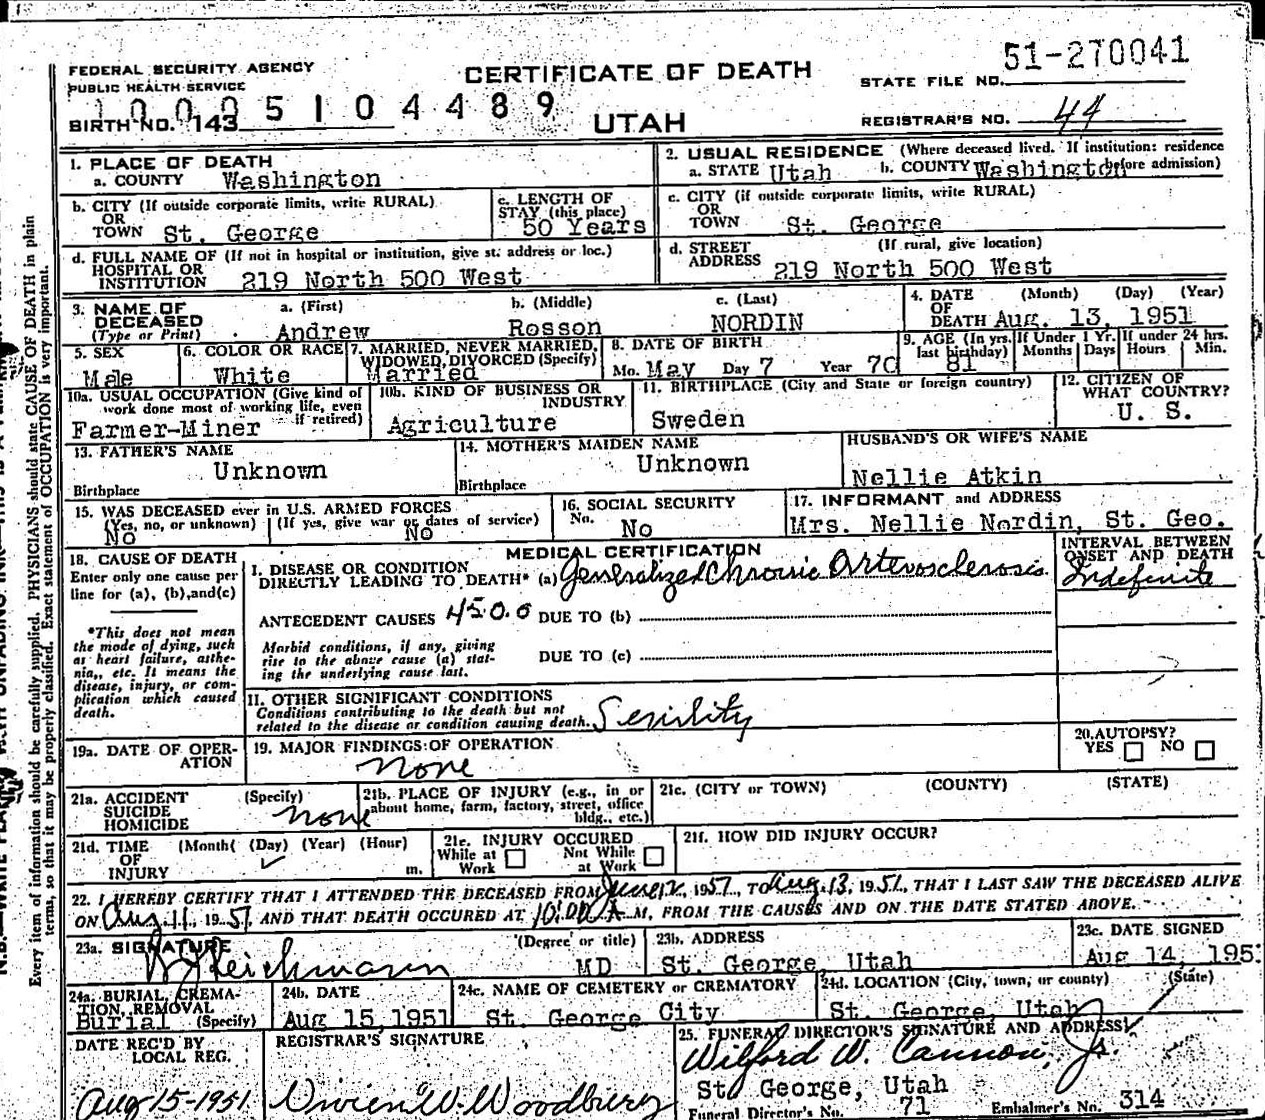 51-270041
FEDERAL SECURITY AGENCY
CERTIFICATE OF DEATH
STATE FILE NO.
PUBLIC HEALTH SERVICE
5104489
BIRTH NO. 143
UTAH
REGISTRAR'S NO. 44
1. PLACE OF DEATH
a. COUNTY Washington
2. USUAL RESIDENCE (Where deceased lived. If institution: residence before admission)
a. STATE Utah b. COUNTY Washington
b. CITY (If outside corporate limits, write RURAL)
OR
TOWN St. George
c. LENGTH OF
STAY (this place)
50 Years
c. CITY (if outside corporate limits, write RURAL)
OR
TOWN St. George
d. FULL NAME OF (If not in hospital or institution, give st. address or loc.)
HOSPITAL OR
INSTITUTION 219 North 500 West
d. STREET (If rural, give location)
ADDRESS 219 North 500 West
3. NAME OF DECEASED
(Type or Print)
a. (First) b. (Middle) c. (Last)
Andrew Rosson NORDIN
4. DATE (Month) (Day) (Year)
OF
DEATH Aug. 13, 1951
5. SEX
Male
6. COLOR OR RACE
White
7. MARRIED, NEVER MARRIED,
WIDOWED, DIVORCED (Specify)
Married
8. DATE OF BIRTH
Mo. May Day 7 Year 70
9. AGE (In yrs. last birthday)
81
If Under 1 Yr.
Months Days
If under 24 hrs.
Hours Min.
10a. USUAL OCCUPATION (Give kind of
work done most of working life, even
if retired)
Farmer-Miner
10b. KIND OF BUSINESS OR
INDUSTRY
Agriculture
11. BIRTHPLACE (City and State or foreign country)
Sweden
12. CITIZEN OF
WHAT COUNTRY?
U. S.
13. FATHER'S NAME
Unknown
Birthplace
14. MOTHER'S MAIDEN NAME
Unknown
Birthplace
HUSBAND'S OR WIFE'S NAME
Nellie Atkin
15. WAS DECEASED ever in U.S. ARMED FORCES
(Yes, no, or unknown) (If yes, give war or dates of service)
No No
16. SOCIAL SECURITY
No.
No
17. INFORMANT and ADDRESS
Mrs. Nellie Nordin, St. Geo.
18. CAUSE OF DEATH
Enter only one cause per
line for (a), (b), and (c)
*This does not mean
the mode of dying, such
as heart failure, asthe-
nia, etc. It means the
disease, injury, or com-
plication which caused
death.
MEDICAL CERTIFICATION
I. DISEASE OR CONDITION
DIRECTLY LEADING TO DEATH* (a) Generalized Chronic Arterosclerosis
INTERVAL BETWEEN
ONSET AND DEATH
Indefinite
ANTECEDENT CAUSES 450.0 DUE TO (b)
Morbid conditions, if any, giving
rise to the above cause (a) stat-
ing the underlying cause last.
DUE TO (c)
II. OTHER SIGNIFICANT CONDITIONS
Conditions contributing to the death but not
related to the disease or condition causing death. Senility
19a. DATE OF OPER-
ATION
19. MAJOR FINDINGS OF OPERATION
none
20. AUTOPSY?
YES NO
21a. ACCIDENT (Specify)
SUICIDE
HOMICIDE
none
21b. PLACE OF INJURY (e.g., in or
about home, farm, factory, street, office
bldg., etc.)
21c. (CITY or TOWN) (COUNTY) (STATE)
21d. TIME (Month( (Day) (Year) (Hour)
OF
INJURY m.
21e. INJURY OCCURED
While at Work Not While at Work
21f. HOW DID INJURY OCCUR?
22. I HEREBY CERTIFY THAT I ATTENDED THE DECEASED FROM June 1951, TO Aug. 13, 1951, THAT I LAST SAW THE DECEASED ALIVE
ON Aug 11, 1951 AND THAT DEATH OCCURED AT 10:00 A M, FROM THE CAUSES AND ON THE DATE STATED ABOVE.
23a. SIGNATURE (Degree or title)
Reichmann MD
23b. ADDRESS
St. George, Utah
23c. DATE SIGNED
Aug 14, 195
24a. BURIAL, CREMA-
TION, REMOVAL
Burial (Specify)
24b. DATE
Aug 15, 1951
24c. NAME OF CEMETERY or CREMATORY
St. George City
24d. LOCATION (City, town, or county) (State)
St. George, Utah
DATE REC'D BY
LOCAL REG.
Aug-15-1951
REGISTRAR'S SIGNATURE
Vivien W. Woodbury
25. FUNERAL DIRECTOR'S SIGNATURE AND ADDRESS
Wilford W. Cannon, Jr.
St. George, Utah
Funeral Director's No. 71 Embalmer's No. 314
Every item of information should be carefully supplied. PHYSICIANS should state CAUSE OF DEATH in plain
terms, so that it may be properly classified. Exact statement of OCCUPATION is very important.